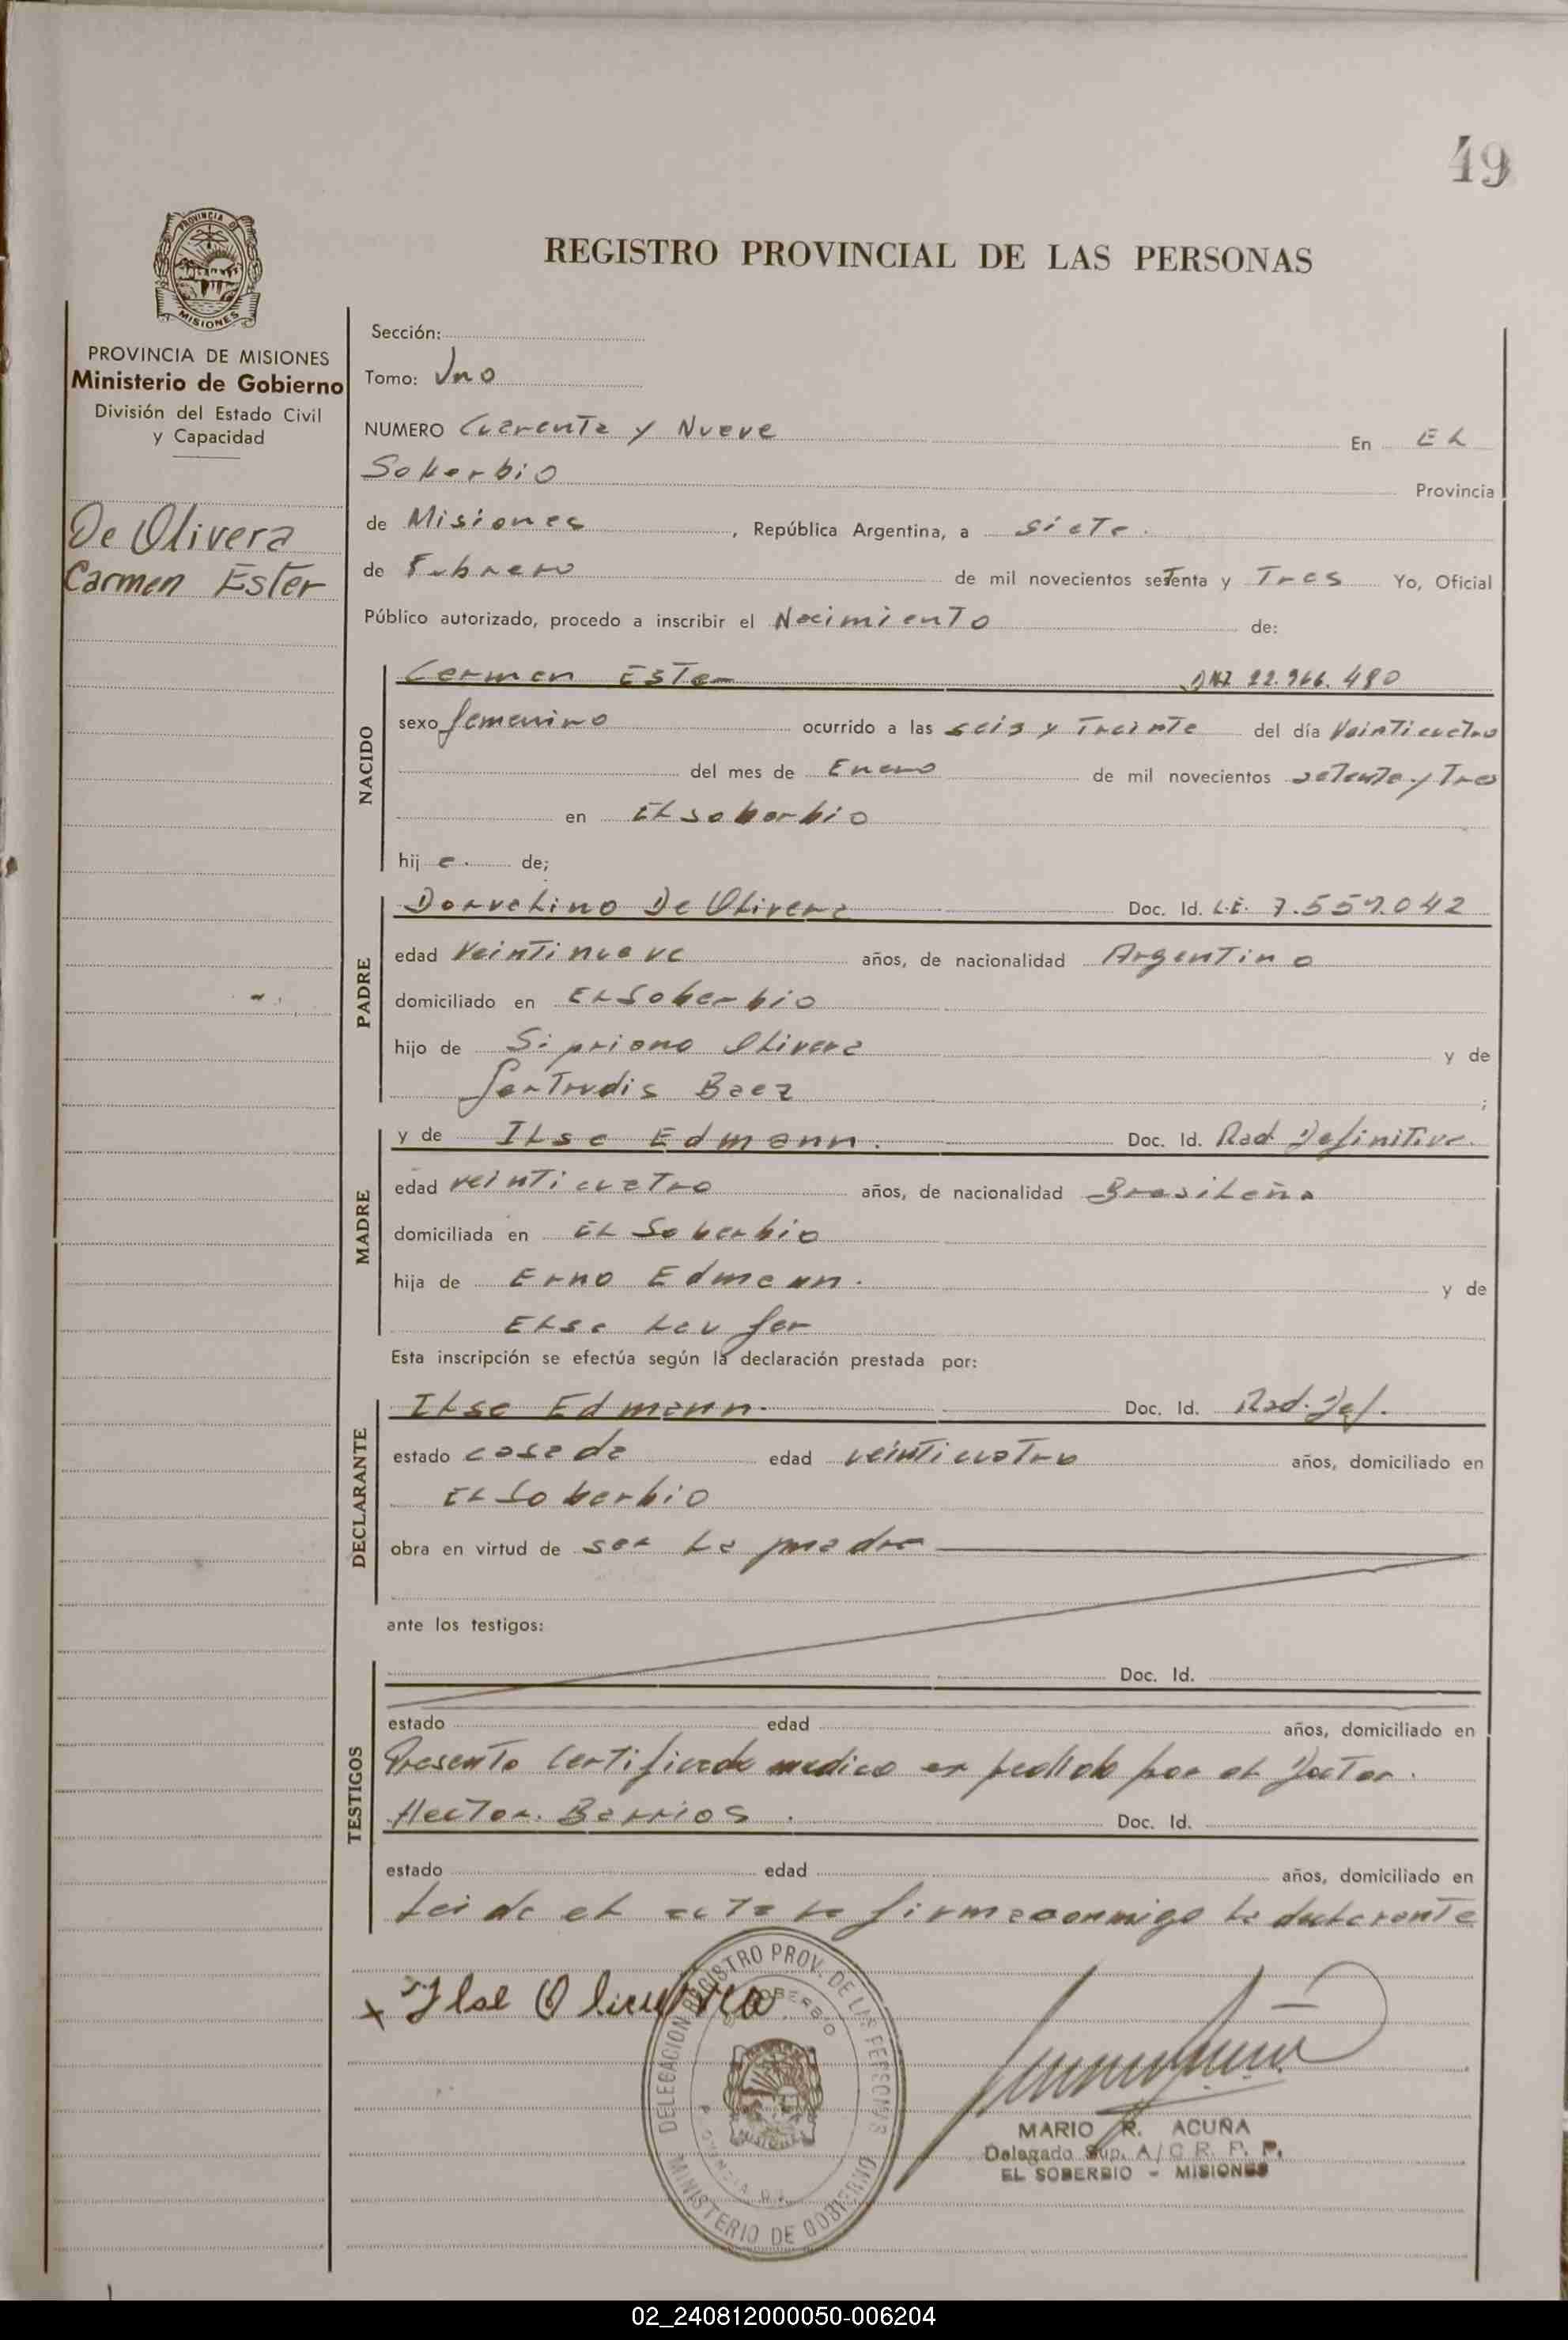 49
PROVINCIA DE
MISIONES
REGISTRO PROVINCIAL DE LAS PERSONAS
PROVINCIA DE MISIONES
Ministerio de Gobierno
División del Estado Civil
y Capacidad
De Olivera
Carmen Ester
Sección:
Tomo: Uno
NUMERO Cuarenta y Nueve En EL
Soberbio Provincia
de Misiones, República Argentina, a siete.
de Febrero de mil novecientos setenta y Tres Yo, Oficial
Público autorizado, procedo a inscribir el Nacimiento de:
NACIDO
Carmen Ester DNI 22.966.480
sexo femenino ocurrido a las seis y Treinta del día Veinticuatro
del mes de Enero de mil novecientos setenta y Tres
en EL soberbio
hij a. de;
PADRE
Dorvelino De Olivera Doc. Id. L.E. 7.559.042
edad Veintinueve años, de nacionalidad Argentino
domiciliado en EL Soberbio
hijo de Sipriano Olivera y de
Gertrudis Baez ;
MADRE
y de ILse Edmann. Doc. Id. Rad. Definitiva.
edad veinticuatro años, de nacionalidad BrasiLeña
domiciliada en EL Soberbio
hija de Erno Edmann. y de
ELsa Laufer
Esta inscripción se efectúa según la declaración prestada por:
DECLARANTE
ILse Edmann. Doc. Id. Rad. Def.
estado casada edad veinticuatro años, domiciliado en
EL Soberbio
obra en virtud de ser La madre
ante los testigos:
TESTIGOS
Doc. Id.
estado edad años, domiciliado en
Presento Certificado medico expedido por el Doctor.
Hector. Barrios. Doc. Id.
estado edad años, domiciliado en
Leida el acta La firma conmigo La declarante
x Ilse Olivera
DELEGACION REGISTRO PROV. DE LAS PERSONAS
SOBERBIO
MISIONES
MINISTERIO DE GOBIERNO
MARIO R. ACUÑA
Delegado Sup. A/C R. P. P.
EL SOBERBIO - MISIONES
02_240812000050-006204